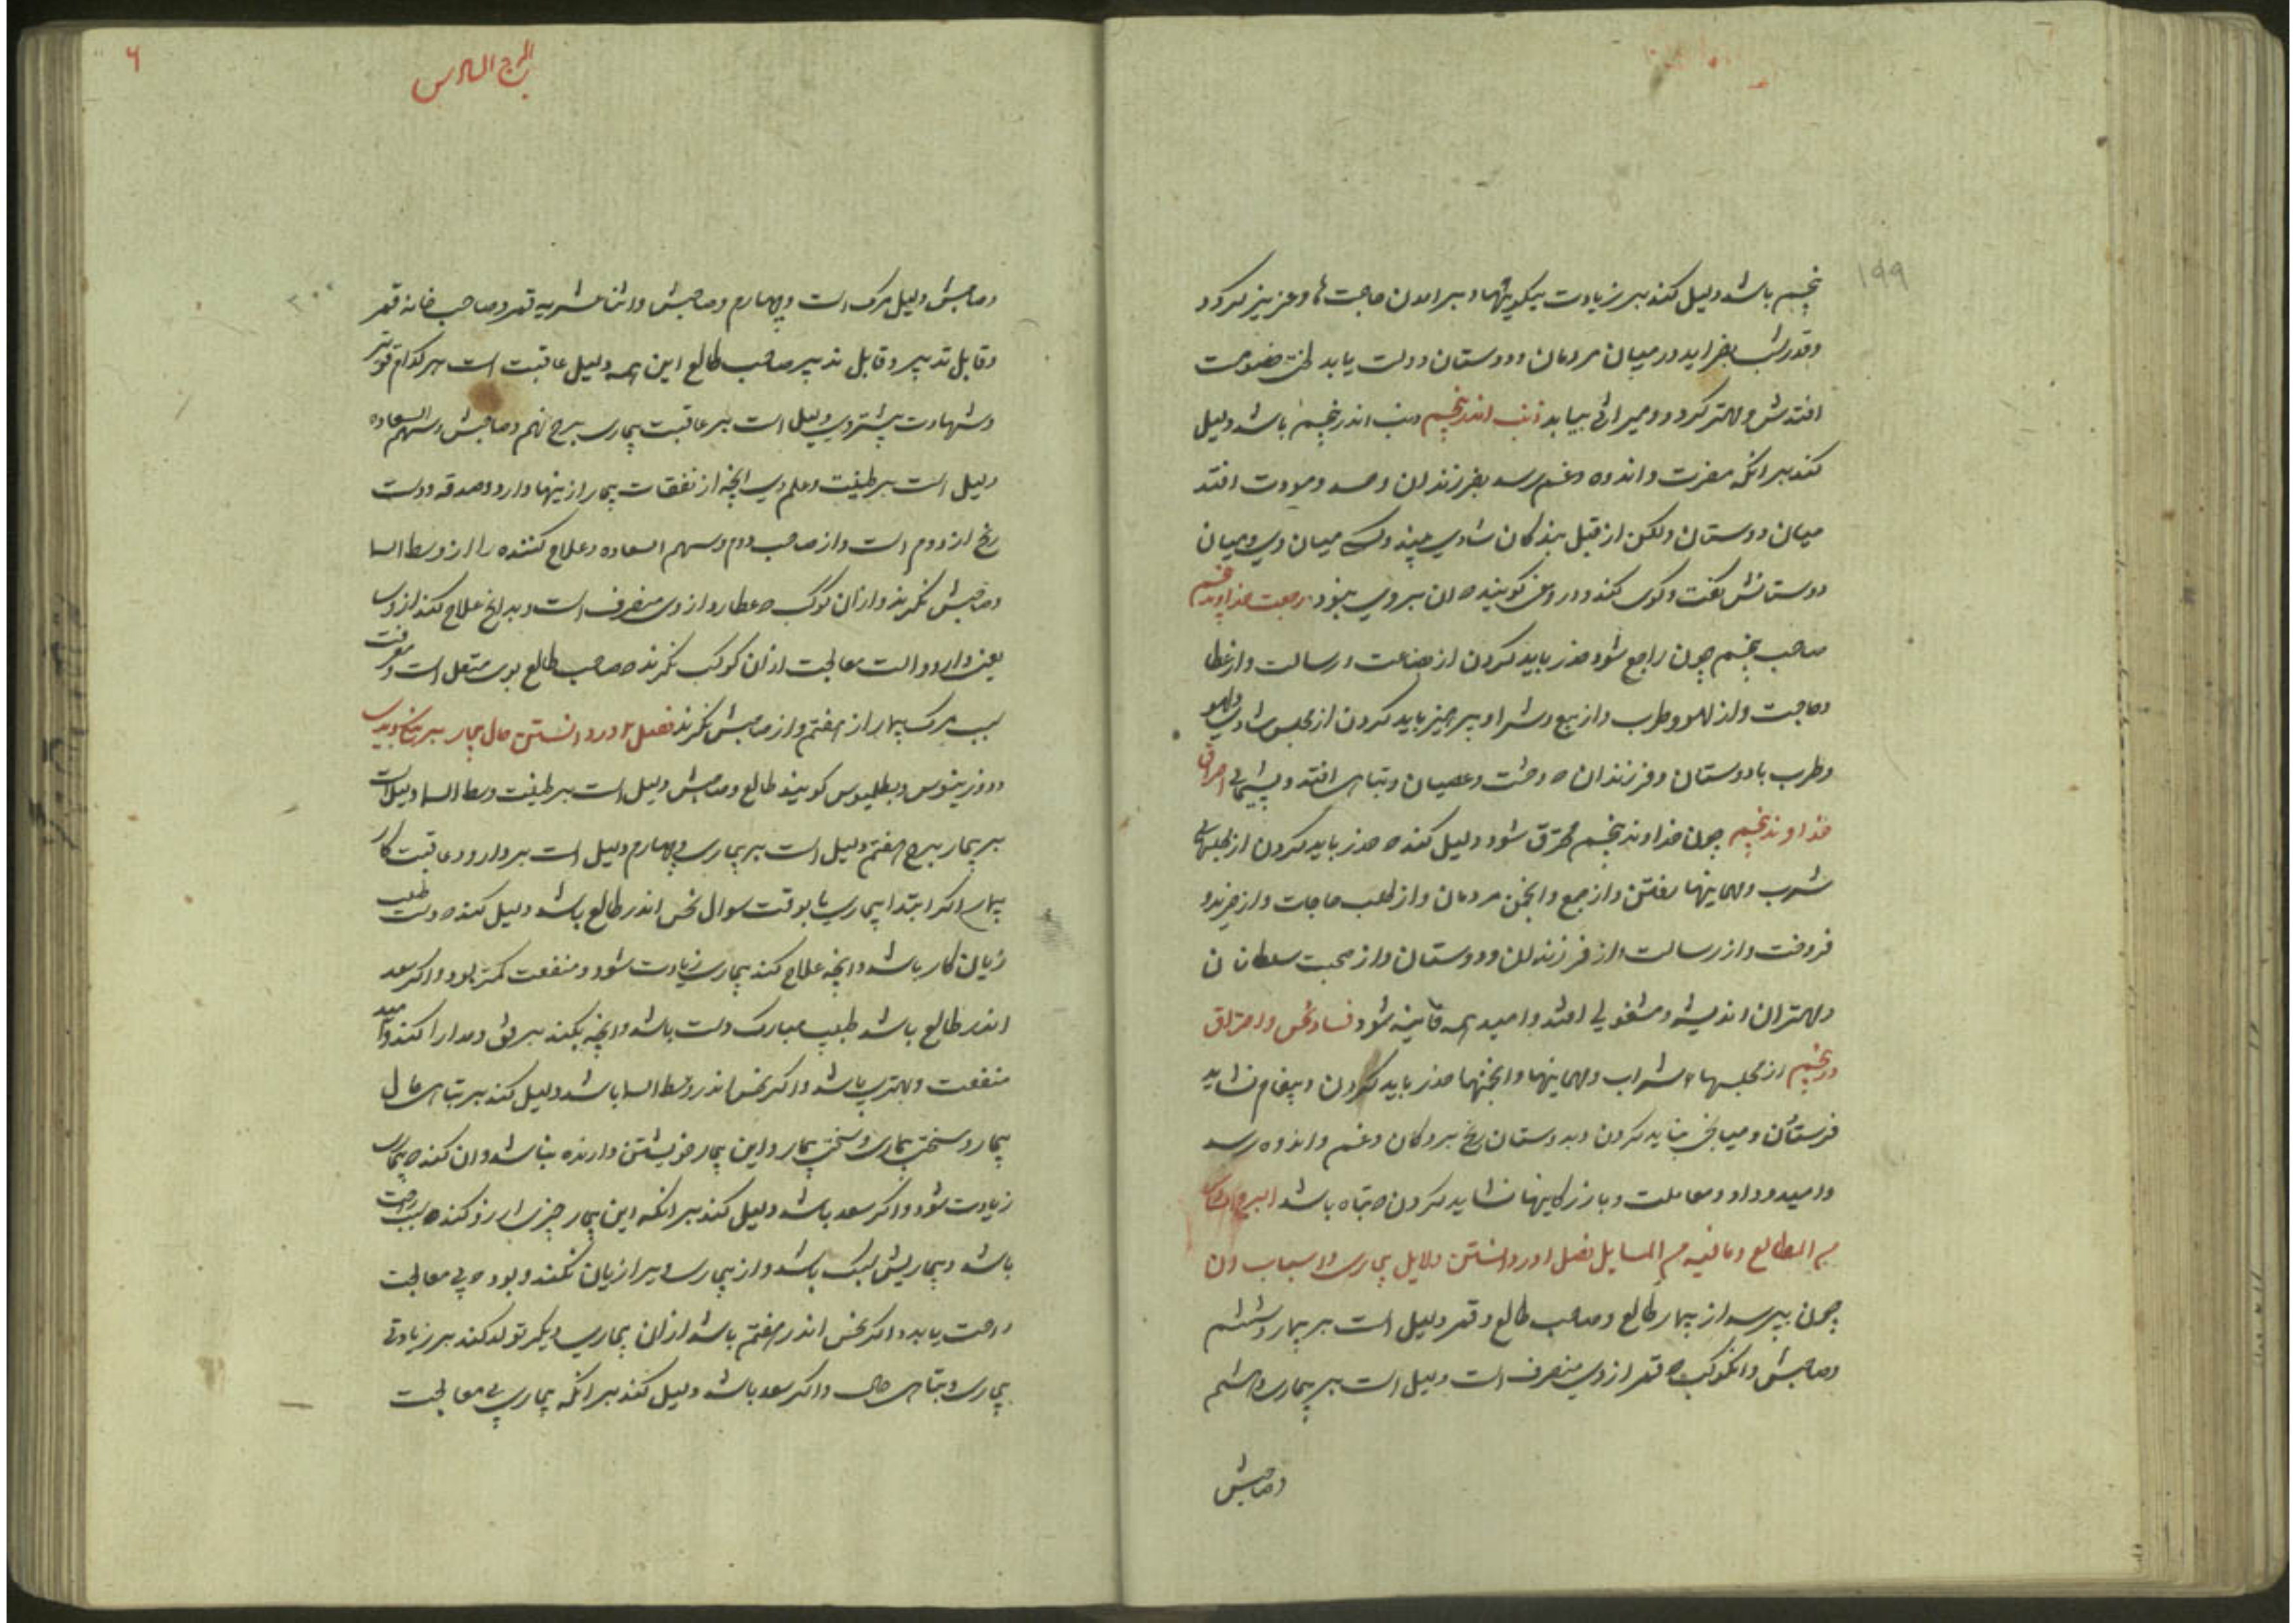 ۱۹۹
پنجم باشد دلیل کند بر زیادت نیکوییها و برامدن حاجت ها و عزیز کردد
وقدرش بفزاید در میان مردمان و دوستان دولت یابد لختی خصومت
افتدش و مهتر کردد و میراثی بیابد ذنب اندر پنجم ذنب اندر پنجم باشد دلیل
کند بر انکه مضرت و اندوه و غم رسد بفرزندان و حسد و عداوت افتد
میان دوستان ولکن از قبل بندکان شادی بیند ولی میان وی و میان
دوستانش کفت و کوی کند و دروغی کویند ه ان بر وی نبود رجعت خداوند پنجم
صاحب پنجم چون راجع شود حذر باید کردن از صناعت و رسالت و از عطا
و حاجت و از لهو و طرب و از بیع و شرا و پرهیز باید کردن از مجلس شادی و لهو
و طرب با دوستان و فرزندان ه وحشت و عصیان و تباهی افتد و پشیمانی احراق
خداوند پنجم چون خداوند پنجم محترق شود دلیل کند ه حذر باید کردن از مجلسهای
شرب و مهمانیها رفتن و از جمع و انجمن مردمان و از طلب حاجات و از خرید و
فروخت و از رسالت و از فرزندان و دوستان و از صحبت سلطانان
و مهتران اندیشه و مشغولی افتد و امید همه فاینه شود فساد نحس و احتراق
در پنجم از مجلسها و شراب و مهمانیها و انجمنها حذر باید کردن و پیغام نشاید
فرستادن و میانجی نباید کردن و بدوستان رنج بردکان و غم و اندوه رسد
و امید و داد و معاملت و بازرکانیها نشاید کردن ه تباه باشد البرج السادس
من المطالع و مافیه من المسایل فصل ا در دانستن دلایل بیماری و اسباب ان
چون بپرسد از بیمار طالع و صاحب طالع و قمر دلیل است بر بیمار و ششم
و صاحبش و انکوکب ه قمر از وی منصرف است دلیل است بر بیماری و هشتم
و صاحبش
۶
البرج السادس
۲۰۰
و صاحبش دلیل مرک است و چهارم و صاحبش و اثنا عشریه قمر و صاحب خانه قمر
و قابل تدبیر و قابل تدبیر صاحب طالع این همه دلیل عاقبت است هر کدام قویتر
و شهادت بیشتر وی دلیل است بر عاقبت بیماری برج نهم و صاحبش و سهم السعاده
دلیل است بر طبیب و علم وی انچه از نفقات بیمار ازینها دارد و صدقه دوست
رنج از دوم است و از صاحب دوم و سهم السعاده و علاج کننده را از وسط السما
و صاحبش نکرند و از ان کوکب ه عطارد از وی منصرف است و بدانچ علاج کند از وی
یعنی دارو و الت معالجت از ان کوکب نکرند ه صاحب طالع بوی متصل است و معرفت
سبب مرک بیمار از هفتم و از صاحبش نکرند فصل ۲ در دانستن حال بیمار بر
دوزثیوس و بطلمیوس کویند طالع و صاحبش دلیل است بر طبیب وسط السما دلیل است
بر بیمار برج هفتم دلیل است بر بیماری و چهارم دلیل است بر دارو و عاقبت کار
بیمار اکر ابتدا بیماری یا بوقت سوال نحس اندر طالع باشد دلیل کند ه دست طبیب
زیان کار باشد و انچه علاج کند بیماری زیادت شود و منفعت کمتر بود و اکر سعد
اندر طالع باشد طبیب مبارک دست باشد و انچه بکند برفق و مدارا کند و امید
منفعت و بهتری باشد و اکر نحس اندر وسط السما باشد دلیل کند بر تباهی حال
بیمار و سختی بیماری و سختی بیمار و این بیمار خویشتن دارنده نباشد و ان کند ه بیماری
زیادت شود و اکر سعد باشد دلیل کند بر انکه این بیمار چیزی ارزو کند ه سبب راحت
باشد و بیماریش سبک باشد و از بیماری ویرا زیان نکند و بود ه بی معالجت
راحت یابد و اکر نحس اندر هفتم باشد از ان بیماری دیکر تولد کند بر زیادتی
بیماری و تباهی حال و اکر سعد باشد دلیل کند بر انکه بیماری بی معالجت